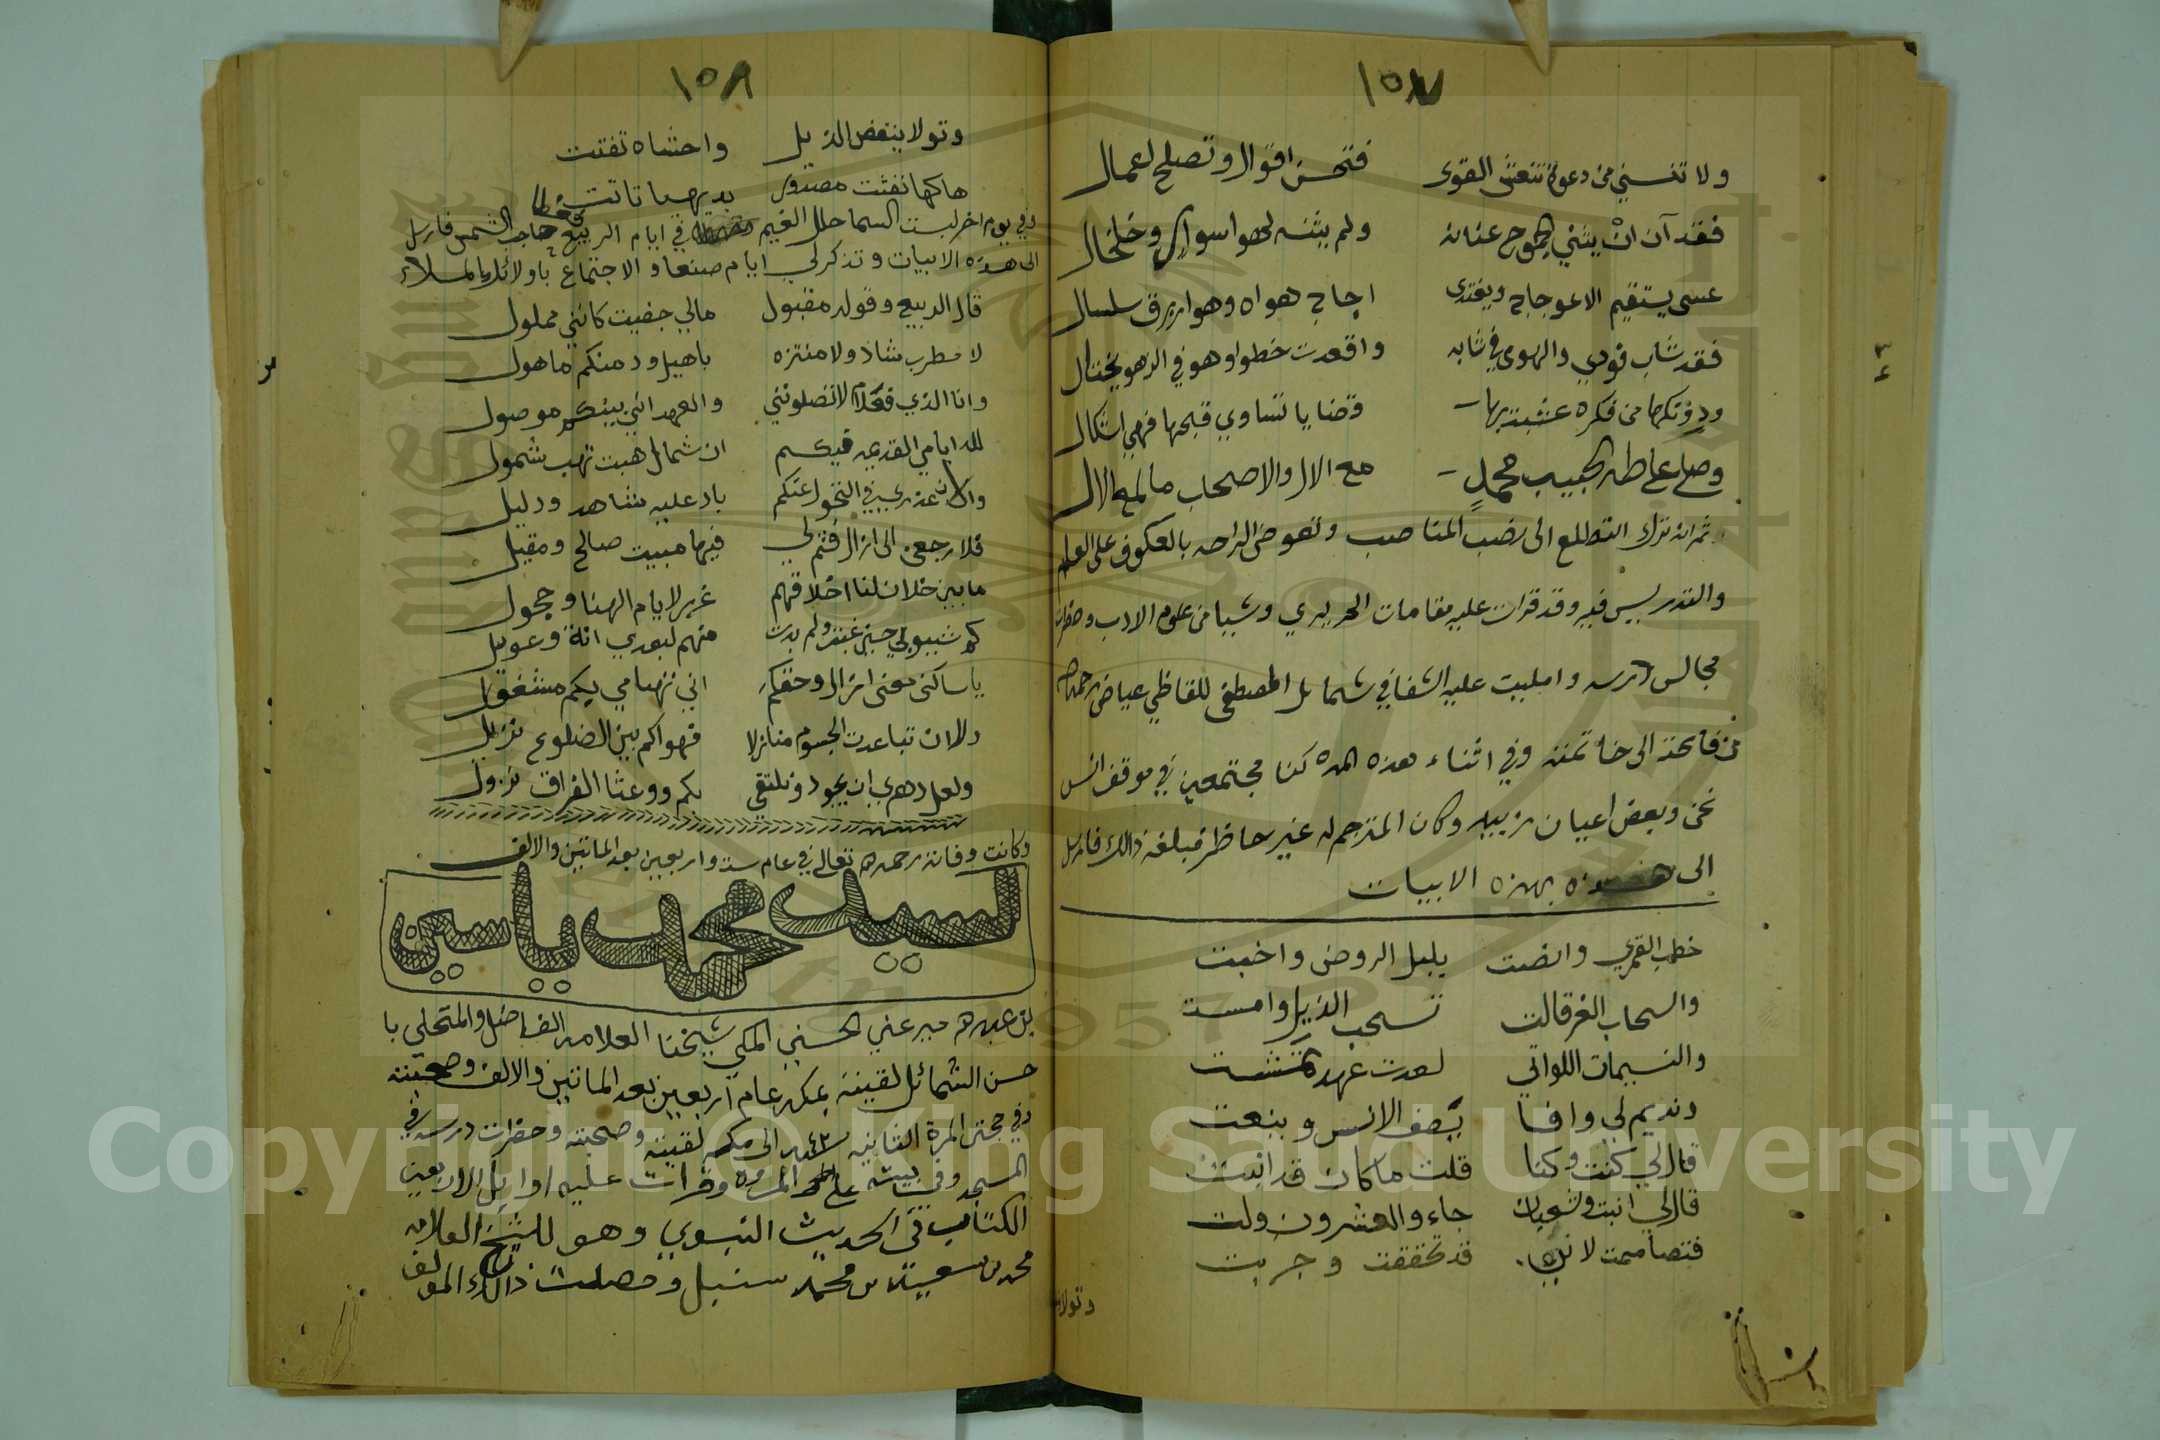 ١٥٧
ولا تنسني من دعوة تنعش القوى فتحسن اقوال وتصلح اعمال
فقد آن انْ يثني الجموح عنانه ولم يثنه لهوا سوار وخلخال
عسى يستقيم الاعوجاج ويغتدى اجاج هواه وهو ازرق سلسال
فقد شاب فودي والهوى في شبابه واقعدت خطوا وهو في الزهو يختال
ودونكها من فكرة عبثت بها قضايا تساوي قبحها فهي اشكال
وصل على طه الحبيب محمدٍ مع الال والاصحاب ما لمع الال
ثم انه ترك التطلع الى نصب المناصب وتعوض الراحه بالعكوف على العلم
والتدريس فيه وقد قرات عليه مقامات الحريري وشيا من علوم الادب وحضرت
مجالس درسه وامليت عليه الشفا في شمائل المصطفى للقاظي عياض رحمه الله
من فاتحته الى خاتمته وفي اثناء هذه المده كنا مجتمعين في موقف انس
نحن وبعض اعيان زبيد وكان المترجم له غير حاظر فبلغه ذالك فارسل
الى بهذه الابيات
خطب القمري وانصت بلبل الروض واخبت
والسحاب الغر قالت تسحب الذيل وامست
والنسيمات اللواتي لعدت عهد تمشت
ونديم لي وافا يصف الانس وينعت
قال لي كنت وكنا قلت ما كان قد انبت
قال لي انبت وشعبان جاء والعشرون ولت
فتصاممت لاني قد تحققت وجربت
وتولا
١٥٨
وتولا ينفض الذيل واحشاه تفتت
هاكها نفثت مصدور بديهيا تاتت
وفي يوم اخر لبست السما حلل الغيم في ايام الربيع فغطا حاجب الشمس فارسل
الى هذه الابيات وتذكر لي ايام صنعا والاجتماع باولائك الملاء
قال الربيع وقوله مقبول مالي جفيت كانني مملول
لا مطرب شاذ ولا متنزه باهيل ود منكم ماهول
وانا الذي فعلام لا تصلونني والعهد اني بينكم موصول
لله ايامي القديمه فيكم ان شمال هبت تهب شمول
والان عذري في التخول عنكم باد عليه شاهد ودليل
فلارجعن الى ازال فثم لي فيها مبيت صالح ومقيل
ما بين خلان لنا اخلاقهم غرر لايام الهنا وحجول
كم شببو لي حين غبت ولم بدت منهم لبعدي انة وعويل
يا ساكني مغنى ازال وحقكم اني تهيامي بكم مشغول
ولان تباعدت الجسوم منازلا فهواكم بين الضلوع نزيل
ولعل دهري ان يجود ونلتقي بكم ووعثا الفراق نزول
وكانت وفاته رحمه الله تعالى في عام ست واربعين بعد الماتين والالف
السيد محمد ياسين
بن عبد الله مير غني الحسني المكي شيخنا العلامه الفاضل والمتحلي با
حسن الشمائل لقيته بمكه عام اربعين بعد الماتين والالف وصحبته
وفي حجتي المرة الثانيه الى مكه لقيته وصحبته وحضرت درسه في
المسجد وفي بيته على المروه وقرات عليه اوايل الاربعين
الكتاب في الحديث النبوي وهو للشيخ العلامه
محمد بن سعيد بن محمد سنبل وحصلت ذالك المولف